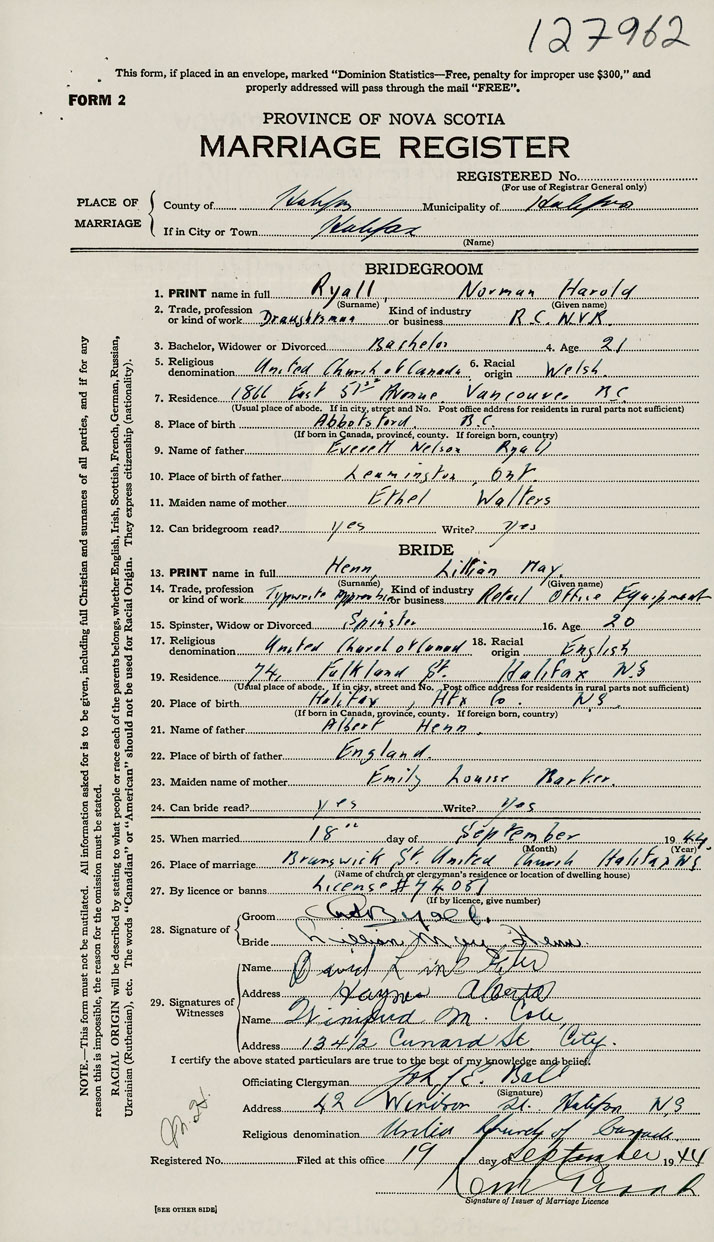 127962
This form, if placed in an envelope, marked "Dominion Statistics—Free, penalty for improper use $300," and
properly addressed will pass through the mail "FREE".
FORM 2
PROVINCE OF NOVA SCOTIA
MARRIAGE REGISTER
REGISTERED No.
(For use of Registrar General only)
PLACE OF MARRIAGE
County of Halifax Municipality of Halifax
If in City or Town Halifax
(Name)
BRIDEGROOM
1. PRINT name in full Ryall, Norman Harold
(Surname) (Given name)
2. Trade, profession or kind of work Draughtsman Kind of industry or business R.C.N.V.R.
3. Bachelor, Widower or Divorced Bachelor 4. Age 21
5. Religious denomination United Church of Canada 6. Racial origin Welsh.
7. Residence 1866 East 51st Avenue Vancouver B.C.
(Usual place of abode. If in city, street and No. Post office address for residents in rural parts not sufficient)
8. Place of birth Abbotsford B.C.
(If born in Canada, province, county. If foreign born, country)
9. Name of father Everett Nelson Ryall
10. Place of birth of father Leamington, Ont.
11. Maiden name of mother Ethel Walters
12. Can bridegroom read? yes Write? yes
BRIDE
13. PRINT name in full Henn, Lillian May.
(Surname) (Given name)
14. Trade, profession or kind of work Typwrite Kind of industry or business Retail Office Equipment
15. Spinster, Widow or Divorced Spinster 16. Age 20
17. Religious denomination United Church of Canad 18. Racial origin English
19. Residence 74, Falkland St. Halifax N.S
(Usual place of abode. If in city, street and No. Post office address for residents in rural parts not sufficient)
20. Place of birth Halifax, Hfx Co. N.S.
(If born in Canada, province, county. If foreign born, country)
21. Name of father Albert Henn
22. Place of birth of father England.
23. Maiden name of mother Emily Louise Barker.
24. Can bride read? yes Write? yes
25. When married 18th day of September 1944.
(Month) (Year)
26. Place of marriage Brunswick St. United Church Halifax NS
(Name of church or clergyman's residence or location of dwelling house)
27. By licence or banns License # 74081
(If by licence, give number)
28. Signature of
Groom Ryall.
Bride Lillian May Henn.
29. Signatures of Witnesses
Name David
Address Haynes Alberta
Name Winifred M. Cole,
Address 134/2 Cunard St. City.
I certify the above stated particulars are true to the best of my knowledge and belief.
Officiating Clergyman John E. Ball
(Signature)
Address 42 Windsor St. Halifax N S
Religious denomination United Church of Canada.
Registered No. Filed at this office 19 day of September 1944
Signature of Issuer of Marriage Licence
[SEE OTHER SIDE]
NOTE.—This form must not be mutilated. All information asked for is to be given, including full Christian and surnames of all parties, and if for any
reason this is impossible, the reason for the omission must be stated.
RACIAL ORIGIN will be described by stating to what people or race each of the parents belongs, whether English, Irish, Scottish, French, German, Russian,
Ukrainian (Ruthenian), etc. The words "Canadian" or "American" should not be used for Racial Origin. They express citizenship (nationality).